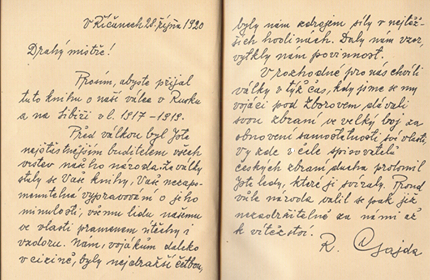 V Říčanech 28. října 1920
Drahý mistře!
Prosím, abyste přijal
tuto knihu o naší válce v Rusku
a na Sibiři v l. 1917-1919.
Před válkou byl Jste
nejštěstnějším buditelem všech
vrstev našeho národa. Za války
staly se Vaše knihy, Vaše nezapo-
menutelná vypravování o jeho
minulosti, všemu lidu našemu
ve vlasti pramenem útěchy i
vzdoru. Nám, vojákům daleko
v cizině, byly nejdražší četbou,
byly nám zdrojem síly v nejtěž-
ších hodinách. Daly nám vzor
vytkly nám povinnost.
V rozhodné pro nás chvíli
války v týž čas, kdy jsme se my
vojáci pod Zborovem, dávali
svou zbraní, ve velký boj za
obnovení samostatnosti, své vlasti,
Vy zde v čele spisovatelů
českých zbraní ducha prolomil
Jste ledy, které ji svíraly. Proud
vůle národa valil se pak již
nezadržitelně za námi až
k vítězství.
R. Gajda